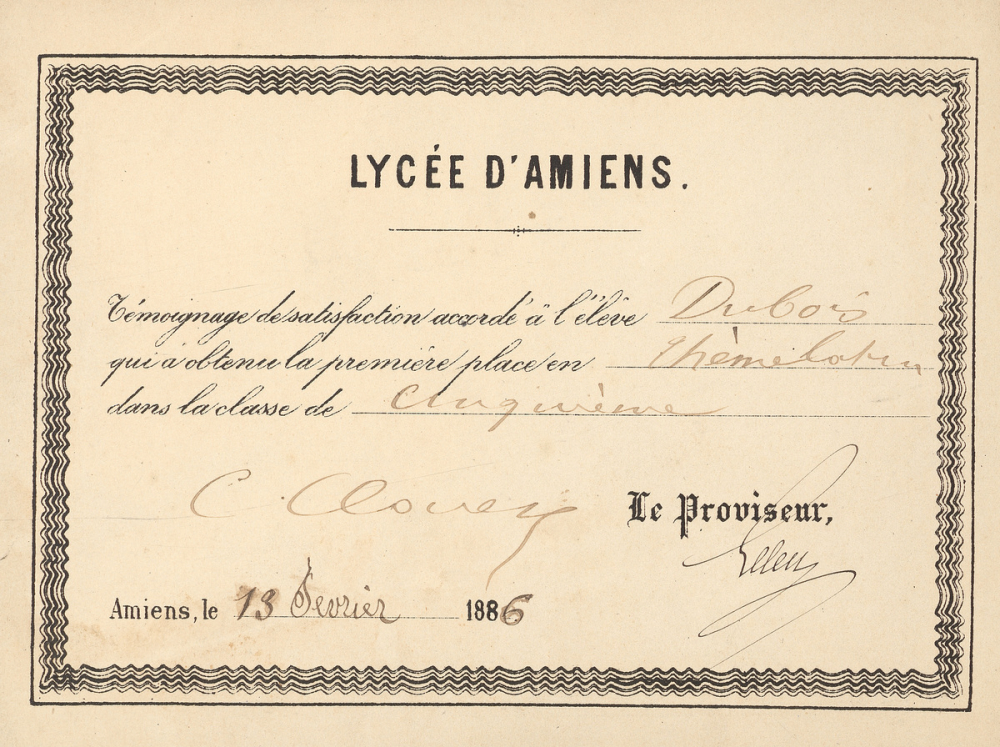 LYCÉE D'AMIENS.
Témoignage de satisfaction accordé à l'élève Dubois
qui a obtenu la première place en thème latin
dans la classe de Cinquième
C.
Le Proviseur,
Amiens, le 13 Fevrier 1886